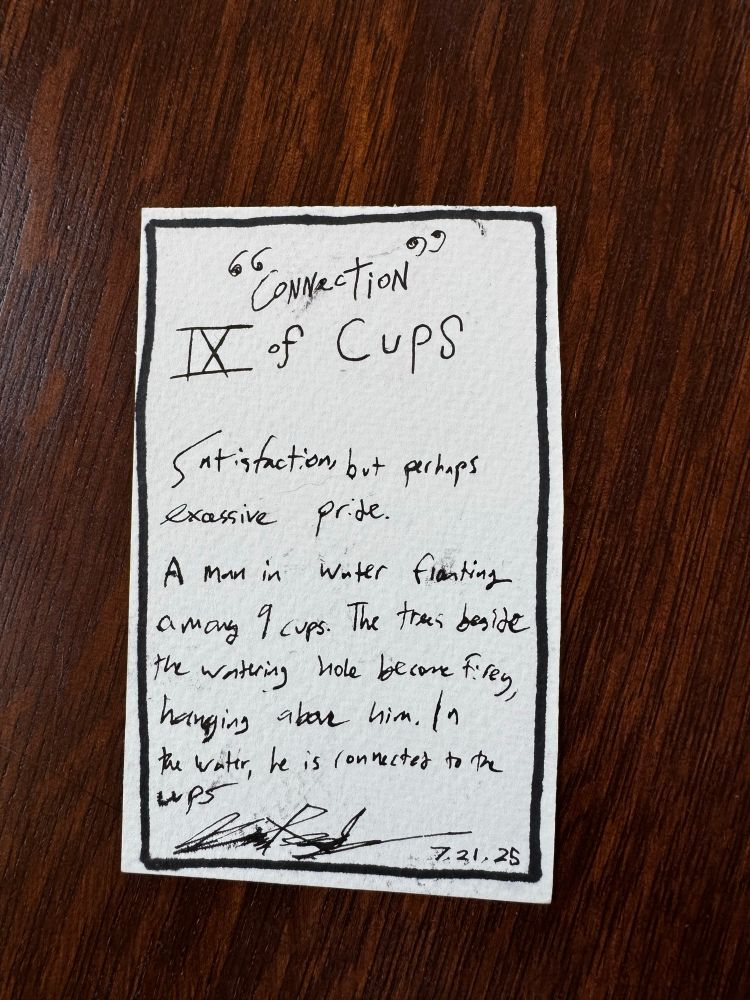 "Connection"
IX of Cups
Satisfaction, but perhaps
excessive pride.
A man in water floating
among 9 cups. The trees beside
the watering hole become firey,
hanging above him. In
the water, he is connected to the
cups
7.21.25